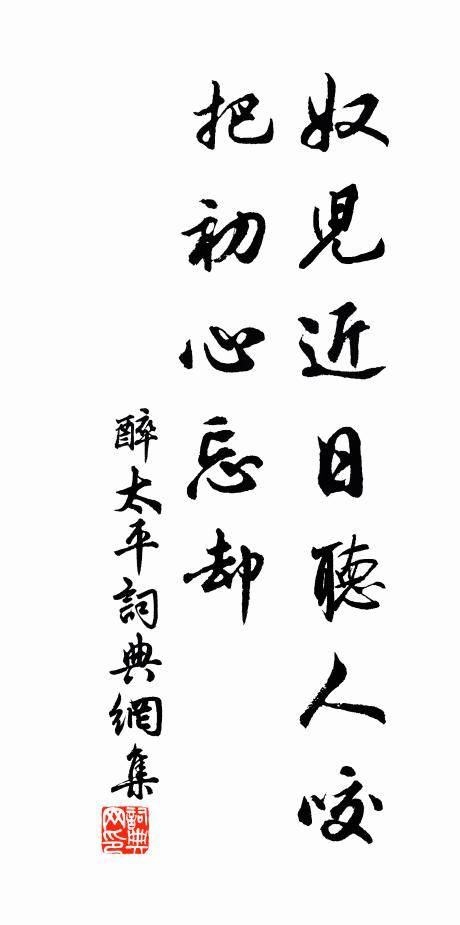 奴児近日聴人咬
把初心忘却
醉太平詞典網集
詞典
网印